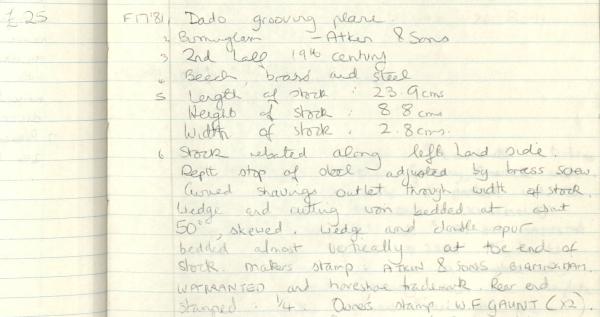 £.25
F17'81 Dado grooving plane.
2 Birmingham - Atkin & Sons
3 2nd half 19th century
4 Beech, brass and steel
5 Length of stock : 23.9cms
Height of stock : 8.8cms
Width of stock : 2.8cms.
6 Stock rebated along left hand side.
Depth stop of steel adjusted by brass screw.
Curved shavings outlet through width of stock.
Wedge and cutting iron bedded at about
50°, skewed. Wedge and double spur
bedded almost vertically at toe end of
stock. makers stamp : ATKIN & SONS BIRMINGHAM.
WARRANTED and horseshoe trademark. Rear end
stamped : 1/4. Owner's stamp : W F GAUNT (x2).